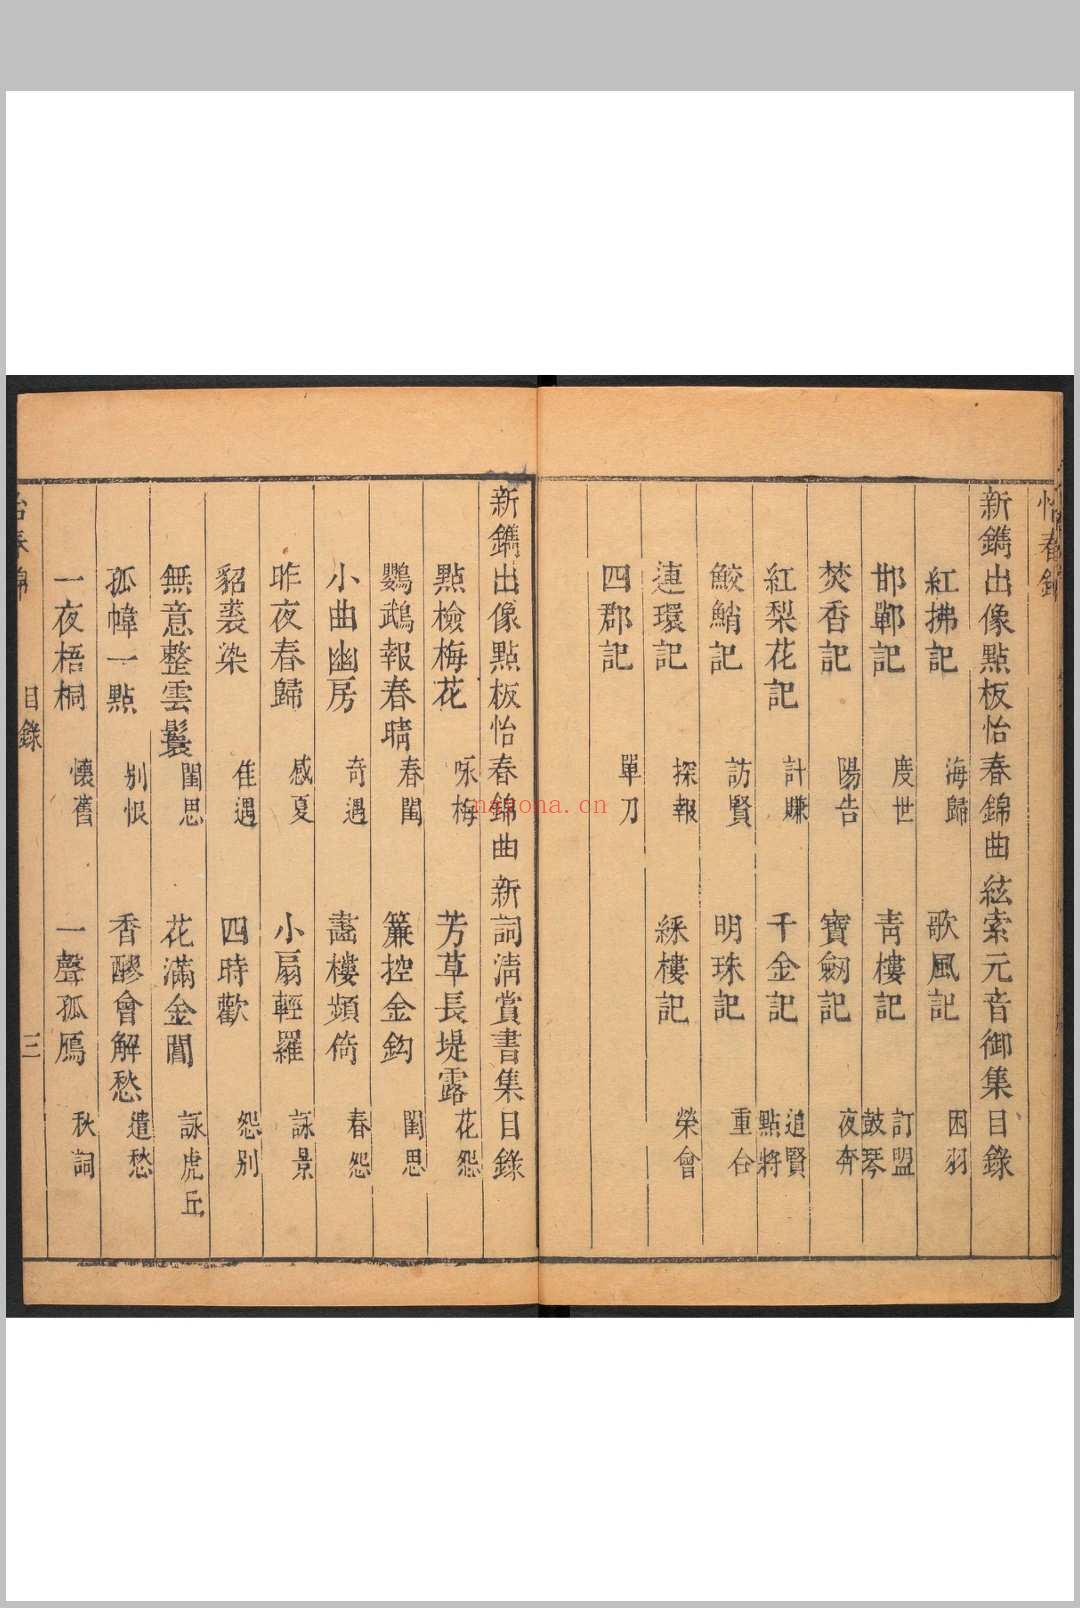 怡春錦
新鐫出像點板怡春錦曲 絃索元音御集目錄
紅拂記 海歸 歌風記 困羽
邯鄲記 度世 青樓記 訂盟 鼓琴
焚香記 陽告 寶劒記 夜奔
紅梨花記 計賺 千金記 追賢 點將
鮫鮹記 訪賢 明珠記 重合
連環記 探報 綵樓記 榮會
四郡記 單刀
新鐫出像點板怡春錦曲 新詞清賞書集目錄
點檢梅花 咏梅 芳草長堤露 花怨
鸚鵡報春晴 春閨 簾控金鈎 閨思
小曲幽房 奇遇 畵樓頻倚 春怨
昨夜春歸 感夏 小扇輕羅 詠景
貂裘染 佳遇 四時歡 怨别
無意整雲鬟 閨思 花滿金閶 詠虎丘
孤幃一點 别恨 香醪會解愁 遣愁
一夜梧桐 懷舊 一聲孤鴈 秋詞
怡春錦 目錄 三
nayona.cn